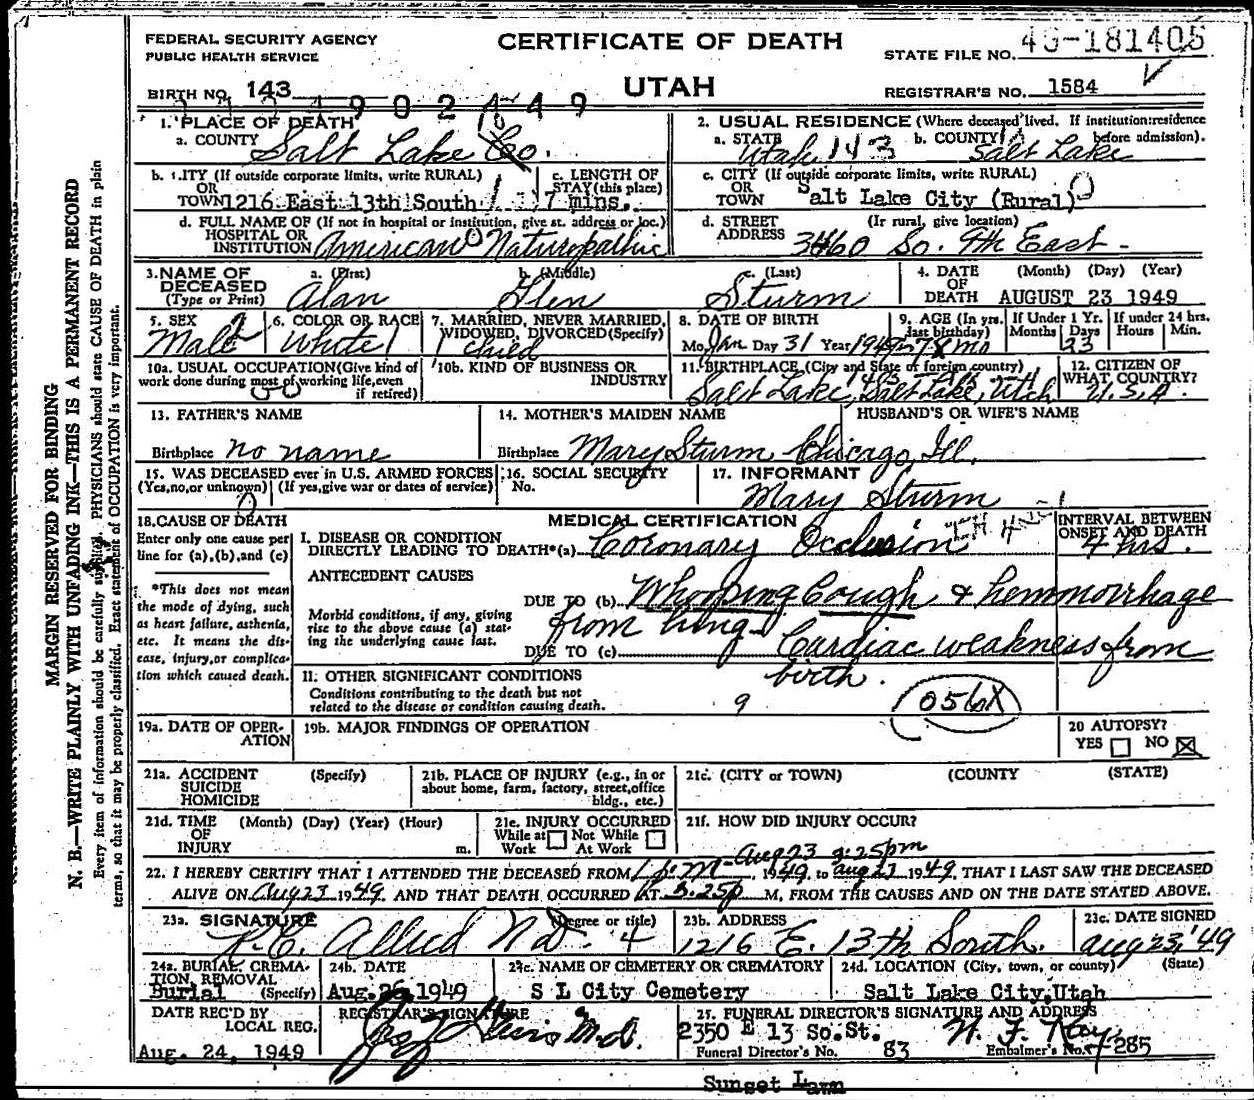 FEDERAL SECURITY AGENCY
PUBLIC HEALTH SERVICE
CERTIFICATE OF DEATH
UTAH
STATE FILE NO. 49-181405
BIRTH NO. 143
REGISTRAR'S NO. 1584
1. PLACE OF DEATH
a. COUNTY Salt Lake Co.
2. USUAL RESIDENCE (Where deceased lived. If institution: residence before admission).
a. STATE Utah 143 b. COUNTY Salt Lake
b. CITY (If outside corporate limits, write RURAL) OR TOWN 1216 East 13th South
c. LENGTH OF STAY (this place) 17 mins.
c. CITY (If outside corporate limits, write RURAL) OR TOWN Salt Lake City (Rural)
d. FULL NAME OF (If not in hospital or institution, give st. address or loc.) HOSPITAL OR INSTITUTION American Naturopathic
d. STREET ADDRESS (If rural, give location) 3460 So. 9th East -
3. NAME OF DECEASED (Type or Print)
a. (First) Alan b. (Middle) Glen c. (Last) Sturm
4. DATE OF DEATH (Month) (Day) (Year) AUGUST 23 1949
5. SEX Male
6. COLOR OR RACE White
7. MARRIED, NEVER MARRIED, WIDOWED, DIVORCED (Specify) Child
8. DATE OF BIRTH Mo. Jan Day 31 Year 1949
9. AGE (In yrs. last birthday) If Under 1 Yr. Months Days 23 If under 24 hrs. Hours Min.
10a. USUAL OCCUPATION (Give kind of work done during most of working life, even if retired)
10b. KIND OF BUSINESS OR INDUSTRY
11. BIRTHPLACE (City and State of foreign country) Salt Lake, Salt Lake, Utah
12. CITIZEN OF WHAT COUNTRY? U.S.A.
13. FATHER'S NAME
Birthplace no name
14. MOTHER'S MAIDEN NAME
Birthplace Mary Sturm Chicago, Ill.
HUSBAND'S OR WIFE'S NAME
15. WAS DECEASED ever in U.S. ARMED FORCES (Yes, no, or unknown) (If yes, give war or dates of service)
16. SOCIAL SECURITY No.
17. INFORMANT Mary Sturm
18. CAUSE OF DEATH
Enter only one cause per line for (a), (b), and (c)
*This does not mean the mode of dying, such as heart failure, asthenia, etc. It means the disease, injury, or complication which caused death.
MEDICAL CERTIFICATION
INTERVAL BETWEEN ONSET AND DEATH
I. DISEASE OR CONDITION DIRECTLY LEADING TO DEATH*(a) Coronary Occlusion 4 hrs.
ANTECEDENT CAUSES
Morbid conditions, if any, giving rise to the above cause (a) stating the underlying cause last.
DUE TO (b) Whooping Cough & hemmorrhage
from lung
DUE TO (c) Cardiac weakness from
birth.
II. OTHER SIGNIFICANT CONDITIONS
Conditions contributing to the death but not related to the disease or condition causing death.
9 056X
19a. DATE OF OPERATION
19b. MAJOR FINDINGS OF OPERATION
20 AUTOPSY?
YES NO
21a. ACCIDENT SUICIDE HOMICIDE (Specify)
21b. PLACE OF INJURY (e.g., in or about home, farm, factory, street, office bldg., etc.)
21c. (CITY or TOWN) (COUNTY) (STATE)
21d. TIME OF INJURY (Month) (Day) (Year) (Hour) m.
21e. INJURY OCCURRED While at Work Not While At Work
21f. HOW DID INJURY OCCUR?
22. I HEREBY CERTIFY THAT I ATTENDED THE DECEASED FROM Aug 23 3:25pm, 1949, to Aug 23 1949, THAT I LAST SAW THE DECEASED
ALIVE ON Aug 23 1949, AND THAT DEATH OCCURRED AT 3:25p M., FROM THE CAUSES AND ON THE DATE STATED ABOVE.
23a. SIGNATURE (Degree or title) Allred N.D. 4
23b. ADDRESS 1216 E. 13th South.
23c. DATE SIGNED Aug 23, '49
24a. BURIAL, CREMATION, REMOVAL (Specify) Burial
24b. DATE Aug. 26, 1949
24c. NAME OF CEMETERY OR CREMATORY S L City Cemetery
24d. LOCATION (City, town, or county) (State) Salt Lake City, Utah
DATE REC'D BY LOCAL REG. Aug. 24, 1949
REGISTRAR'S SIGNATURE M.D.
25. FUNERAL DIRECTOR'S SIGNATURE AND ADDRESS
2350 E 13 So. St.
Funeral Director's No. 83 Embalmer's No. 285
Sunset Lawn
MARGIN RESERVED FOR BINDING
N. B.—WRITE PLAINLY WITH UNFADING INK—THIS IS A PERMANENT RECORD
Every item of information should be carefully supplied. PHYSICIANS should state CAUSE OF DEATH in plain
terms, so that it may be properly classified. Exact statement of OCCUPATION is very important.